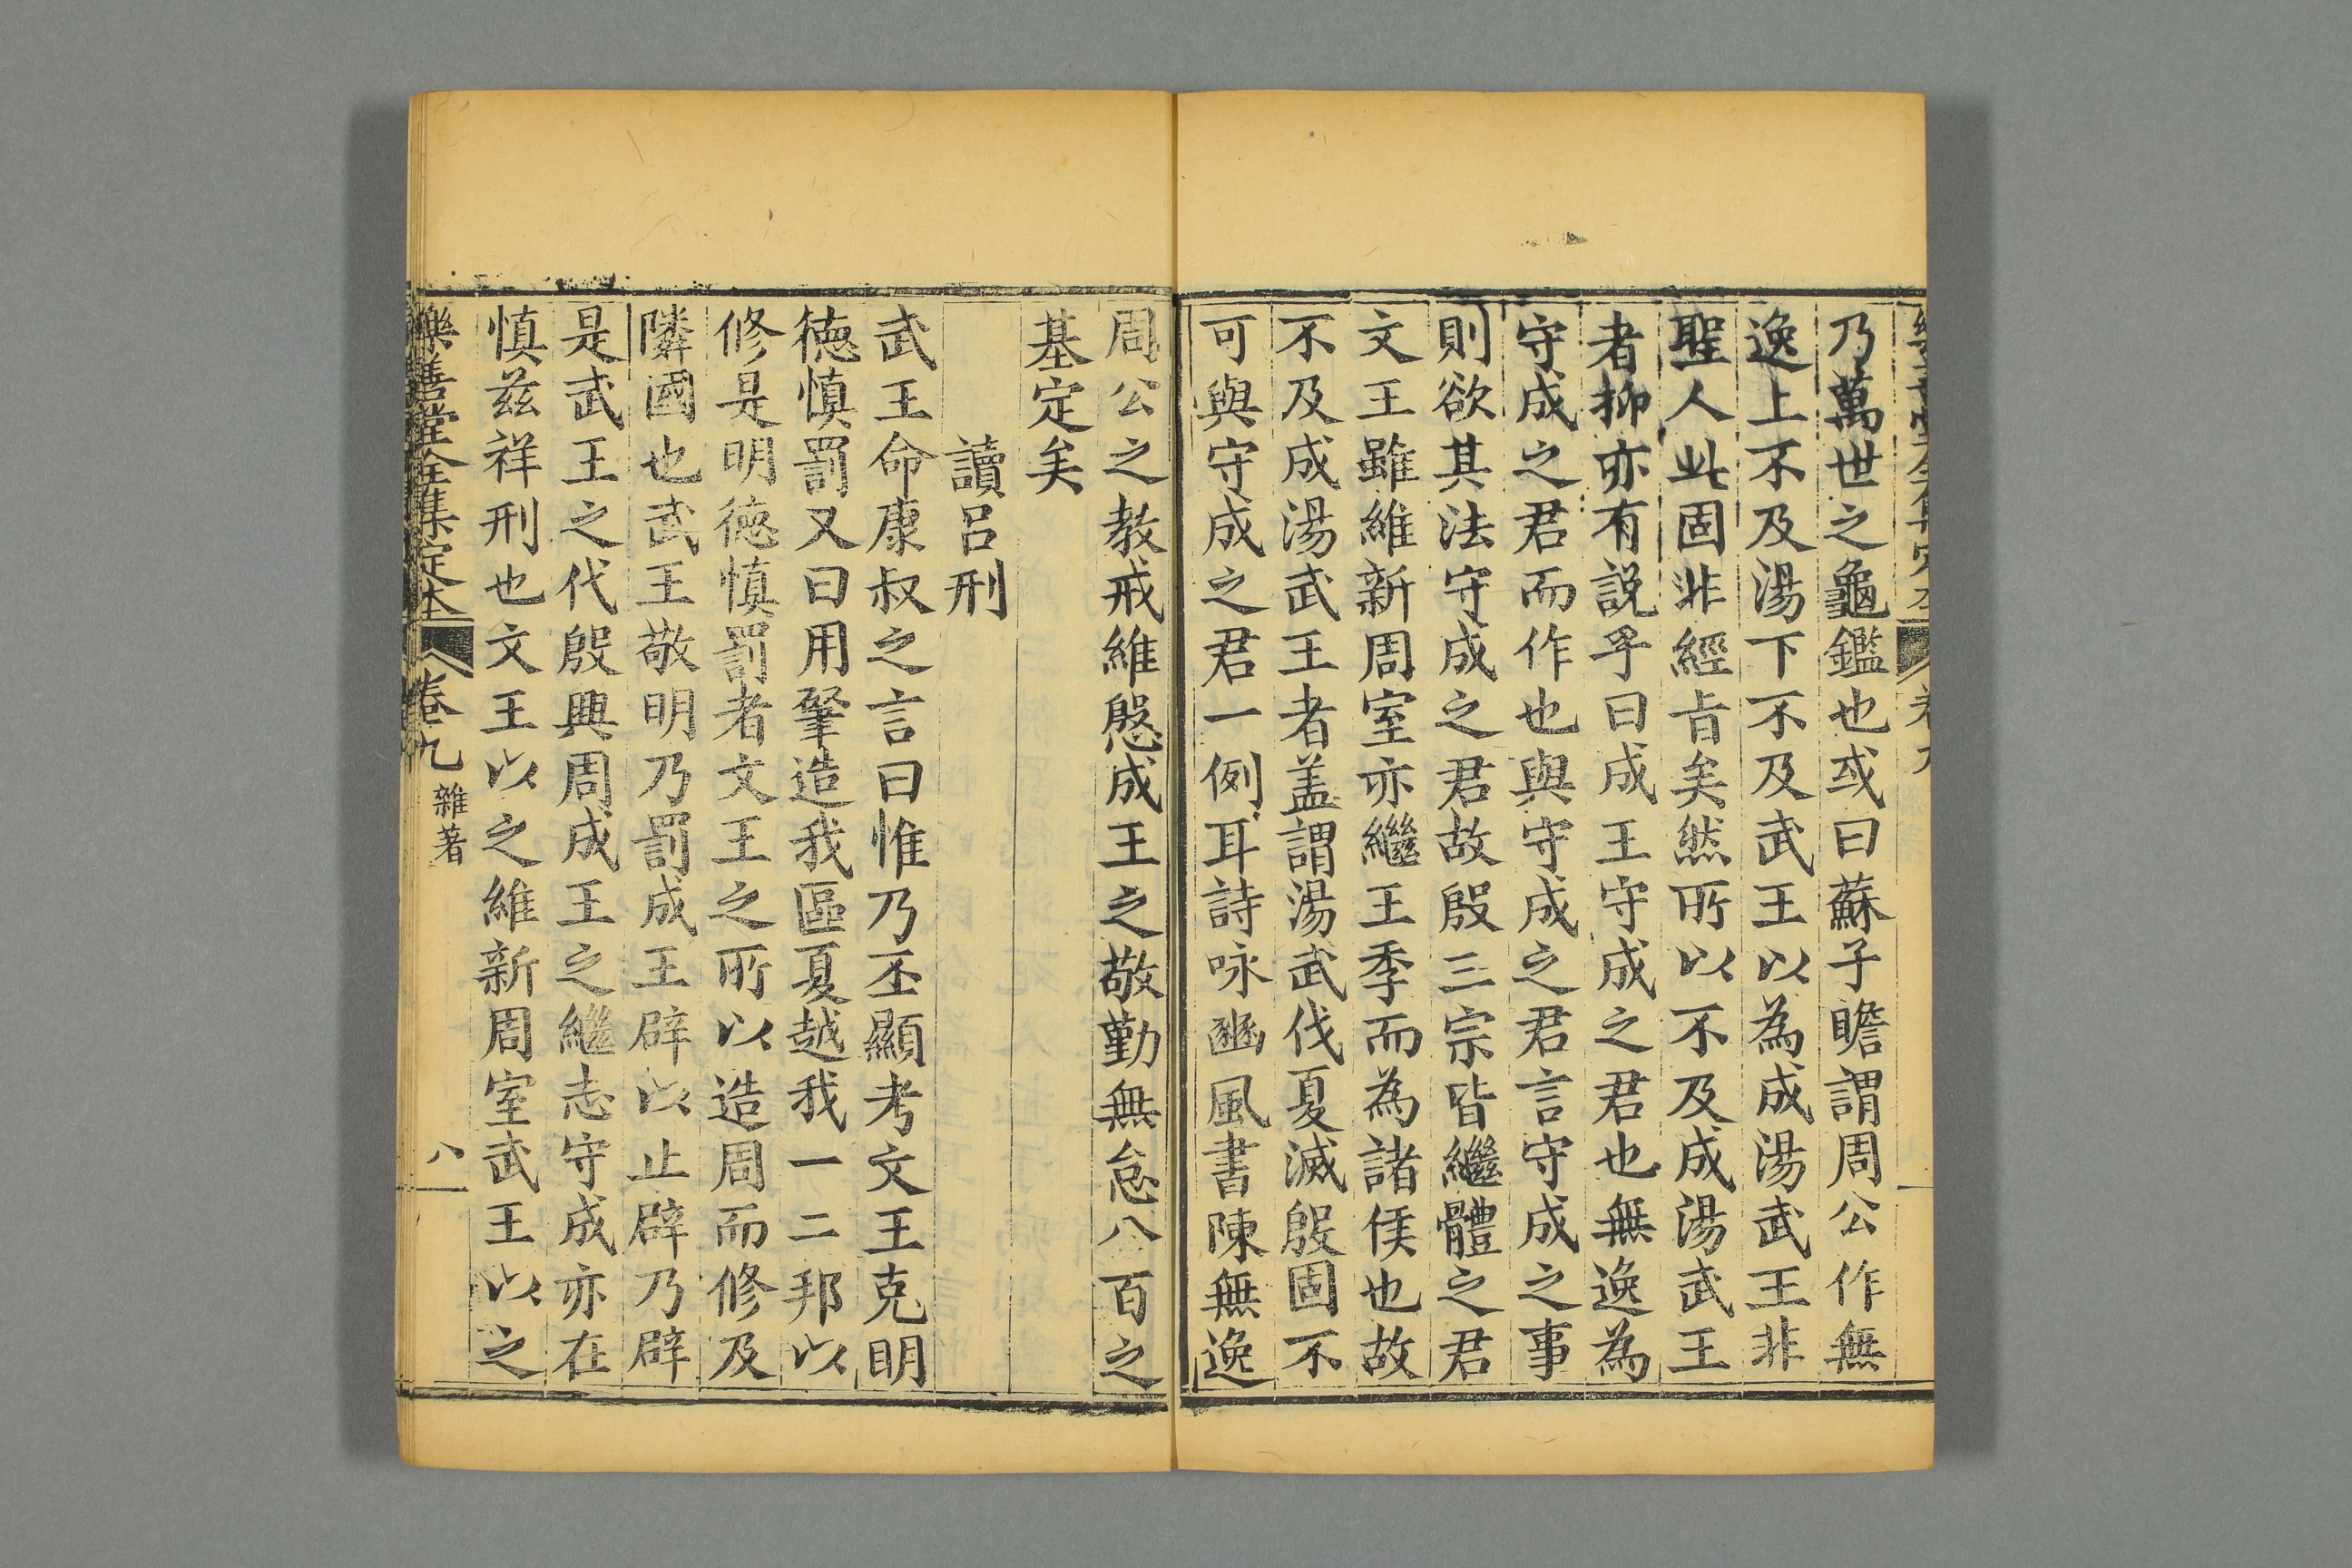 乃萬世之龜鑑也或曰蘇子瞻謂周公作無
逸上不及湯下不及武王以為成湯武王非
聖人此固非經旨矣然所以不及成湯武王
者抑亦有説乎曰成王守成之君也無逸為
守成之君而作也與守成之君言守成之事
則欲其法守成之君故殷三宗皆繼體之君
文王雖維新周室亦繼王季而為諸侯也故
不及成湯武王者盖謂湯武伐夏滅殷固不
可與守成之君一例耳詩咏豳風書陳無逸
周公之教戒維慇成王之敬勤無怠八百之
基定矣
讀呂刑
武王命康叔之言曰惟乃丕顯考文王克明
德慎罰又曰用肇造我區夏越我一二邦以
修是明德慎罰者文王之所以造周而修及
隣國也武王敬明乃罰成王辟以止辟乃辟
是武王之代殷興周成王之繼志守成亦在
慎茲祥刑也文王以之維新周室武王以之
樂善堂全集定本 卷九 雜著 八